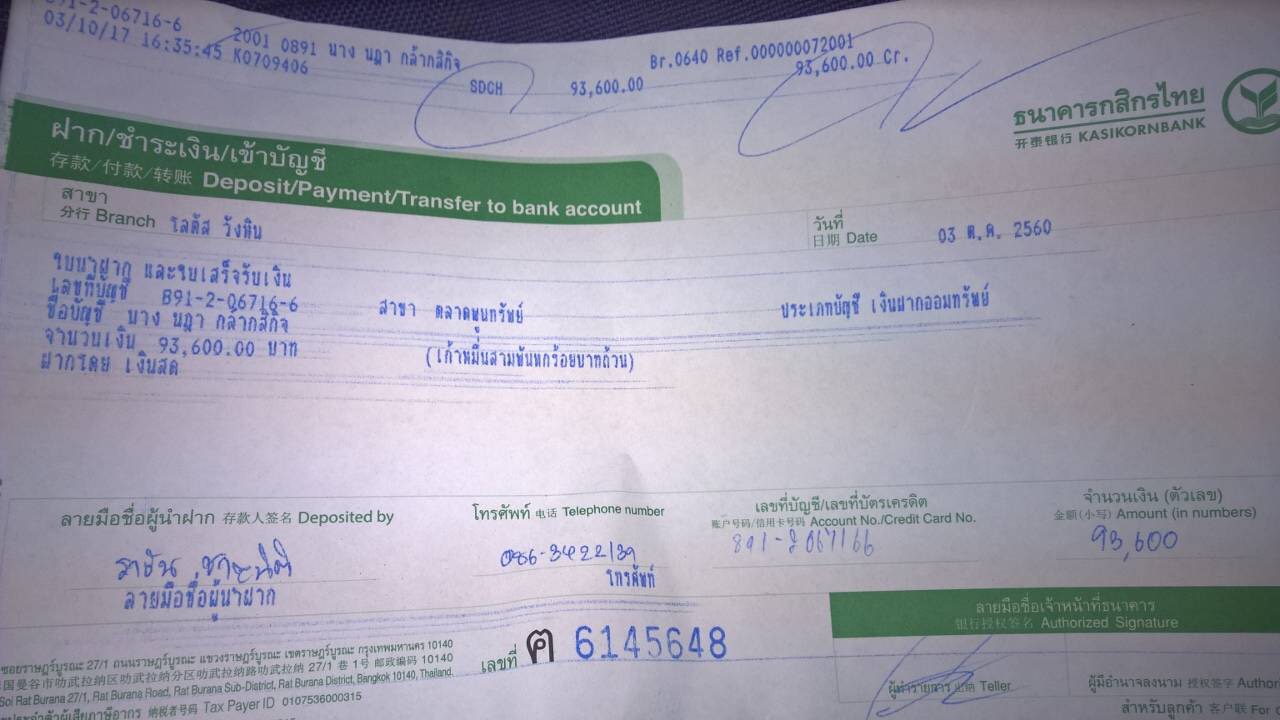 891-2-06716-6 2001 0891 นาง นฎา กล้ากสิกิจ Br.0640 Ref.000000072001
03/10/17 16:35:45 K0709406 SDCH 93,600.00 93,600.00 Cr.
ธนาคารกสิกรไทย
开泰银行 KASIKORNBANK
ฝาก/ชำระเงิน/เข้าบัญชี
存款/付款/转账 Deposit/Payment/Transfer to bank account
สาขา
分行 Branch โลตัส วังหิน
วันที่
日期 Date 03 ต.ค. 2560
ใบนำฝาก และใบเสร็จรับเงิน
เลขที่บัญชี 891-2-06716-6 สาขา ตลาดพูนทรัพย์ ประเภทบัญชี เงินฝากออมทรัพย์
ชื่อบัญชี นาง นฎา กล้ากสิกิจ
จำนวนเงิน 93,600.00 บาท (เก้าหมื่นสามพันหกร้อยบาทถ้วน)
ฝากโดย เงินสด
ลายมือชื่อผู้นำฝาก 存款人签名 Deposited by
โทรศัพท์ 电话 Telephone number
086-3422139
เลขที่บัญชี/เลขที่บัตรเครดิต
账户号码/信用卡号码 Account No./Credit Card No.
891-2067166
จำนวนเงิน (ตัวเลข)
金额(小写) Amount (in numbers)
93,600
ลายมือชื่อผู้นำฝาก
โทรศัพท์
ลายมือชื่อเจ้าหน้าที่ธนาคาร
银行授权签名 Authorized Signature
เลขที่ ฅ 6145648
ซอยราษฎร์บูรณะ 27/1 ถนนราษฎร์บูรณะ แขวงราษฎร์บูรณะ เขตราษฎร์บูรณะ กรุงเทพมหานคร 10140
国曼谷市叻武拉纳区叻武拉纳分区叻武拉纳路叻武拉纳 27/1 巷 1号 邮政编码 10140
Soi Rat Burana 27/1, Rat Burana Road, Rat Burana Sub-District, Rat Burana District, Bangkok 10140, Thailand.
ประจำตัวผู้เสียภาษีอากร 纳税者号码 Tax Payer ID 0107536000315
ผู้ทำรายการ 出纳 Teller
ผู้มีอำนาจลงนาม 授权签字
สำหรับลูกค้า 客户联 For